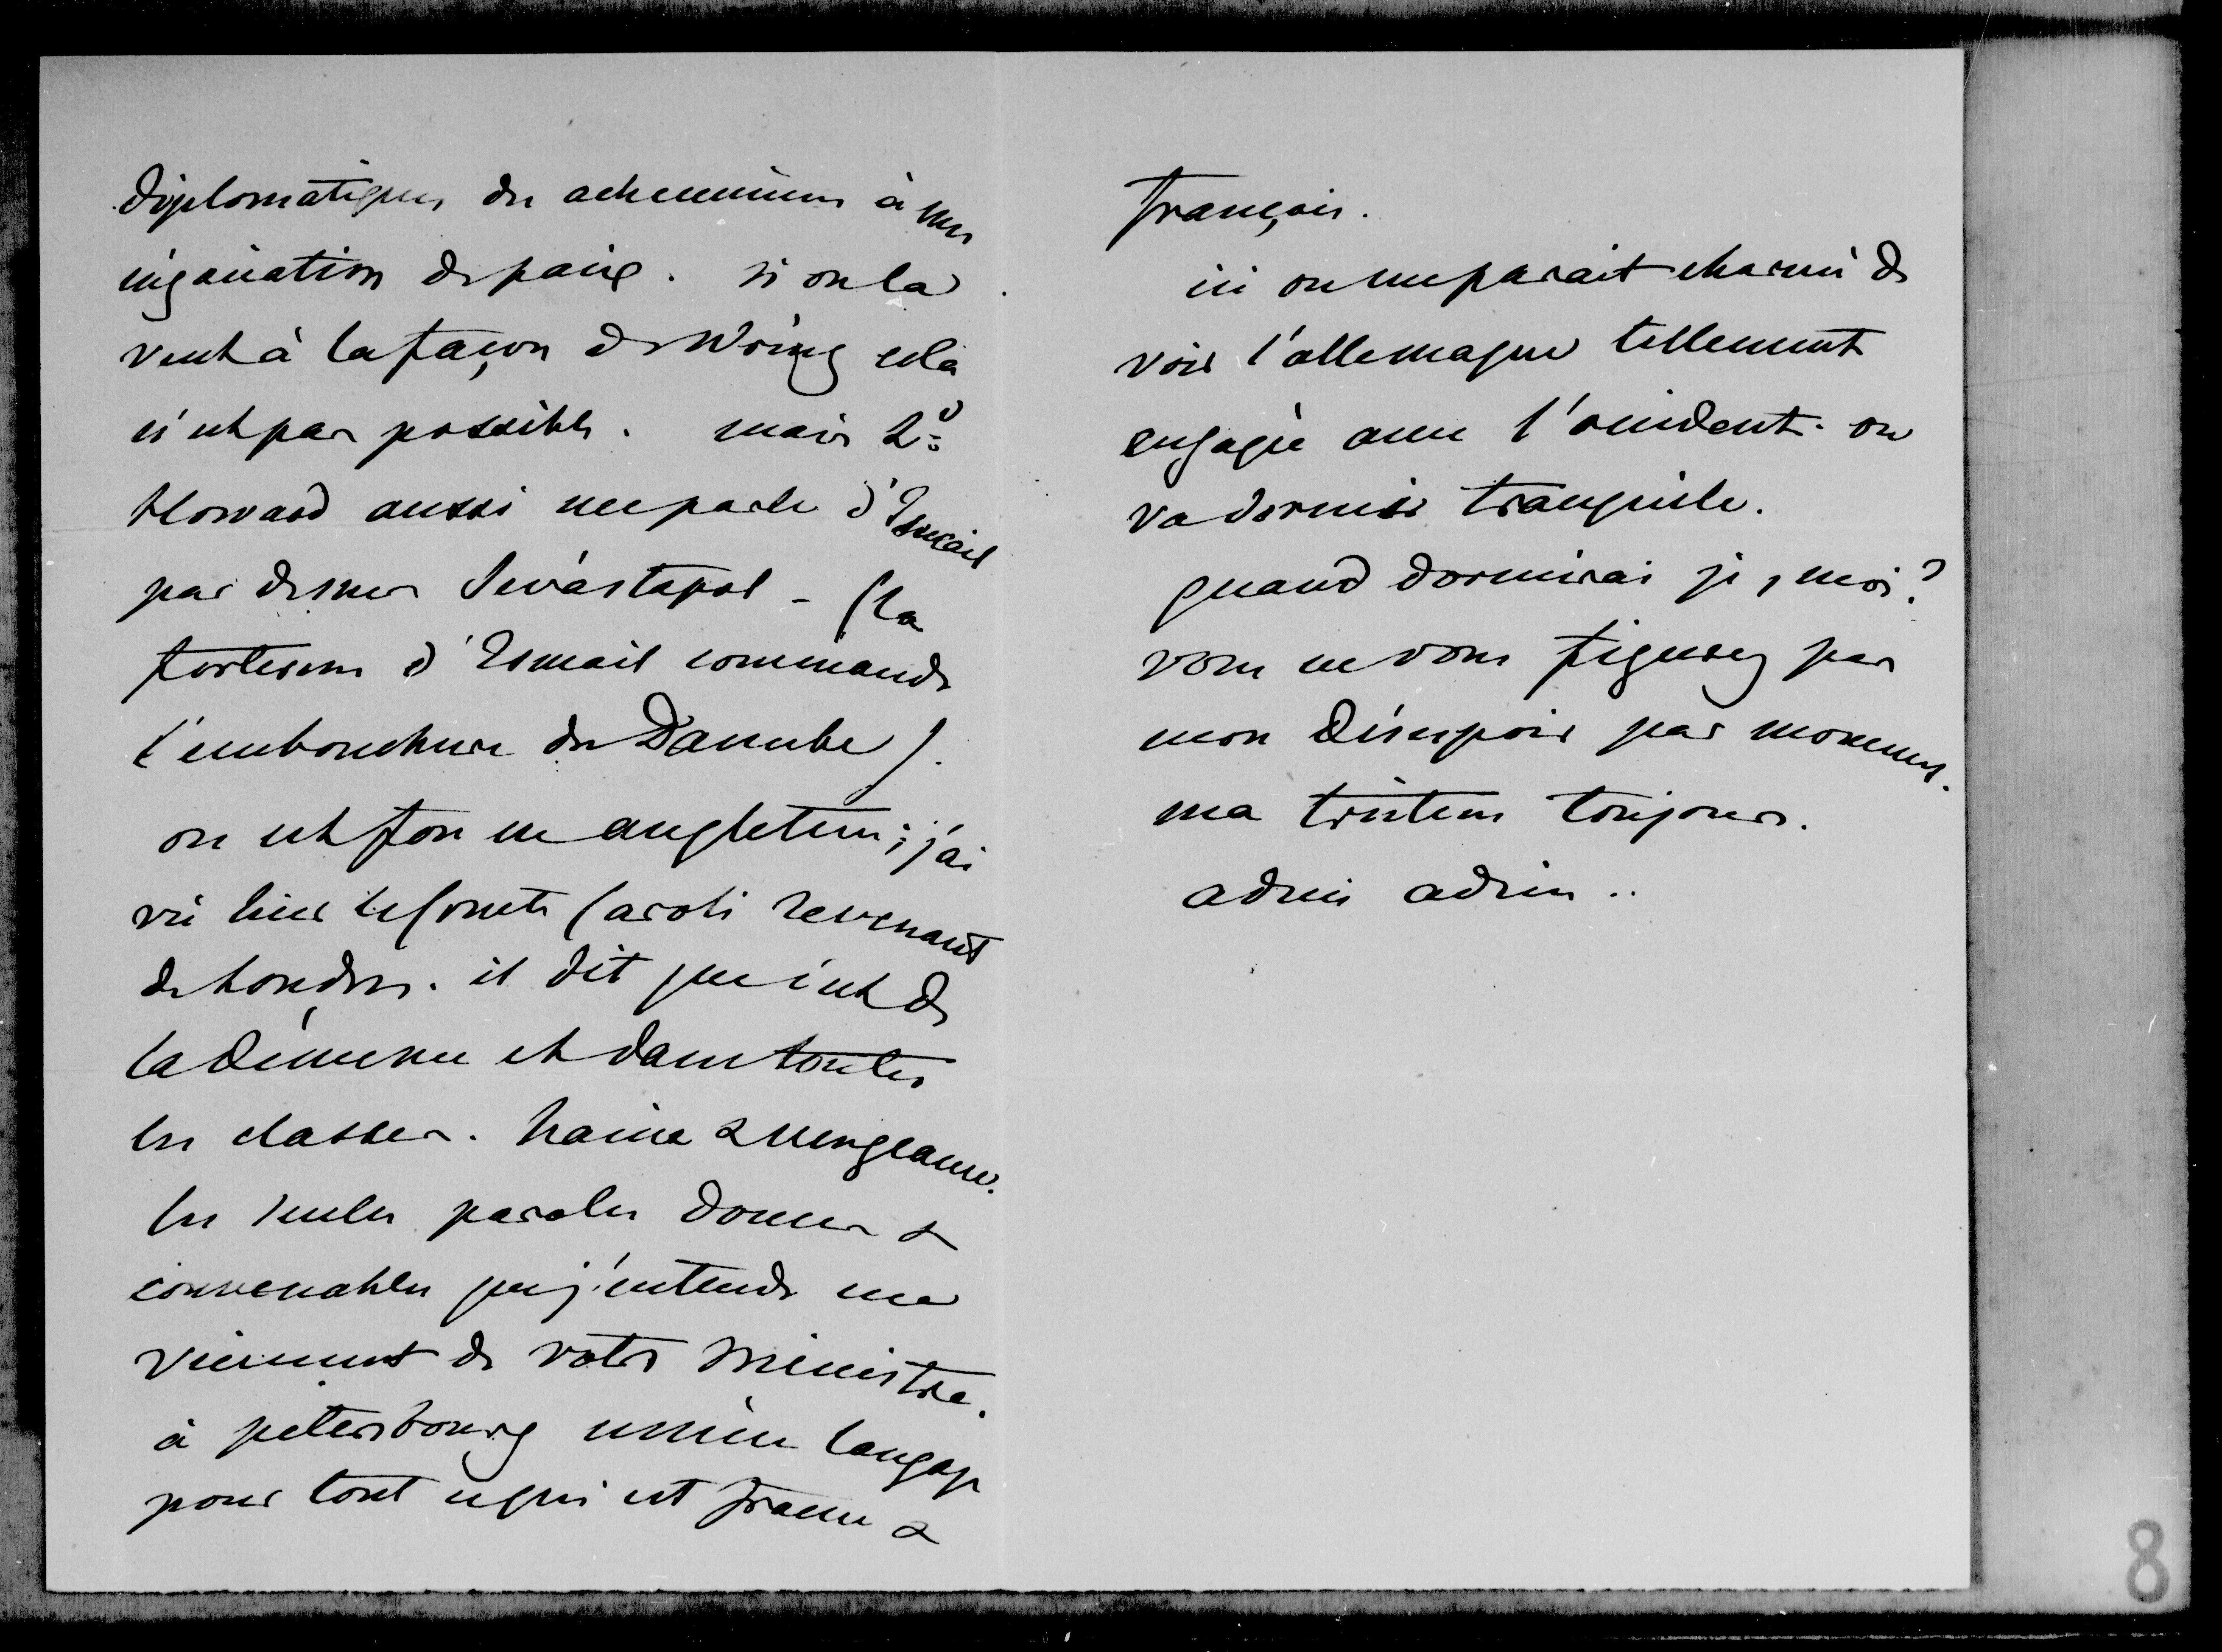 diplomatiques des acheminemens à une
négociation de paix. si on la
veut à la façon de Wöring cela
n'est pas possible. mais Ld
Howard aussi me parle d'Ismail
pas de mer Sévastopol - (la
forteresse d'Ismail commande
l'embouchure du Danube).
on est fou en angleterre; j'ai
vu hier le Comte Caroli revenant
de Londres. il dit que c'est de
la démence et dans toutes
les classes. haine & vengeance.
les seules paroles douces &
convenables que j'entends me
viennent de votre ministre.
à petersbourg même langage
pour tout ce qui est france &
français.
ici on me parait charmé de
voir l'allemagne tellement
engagée avec l'occident. on
va dormir tranquille.
quand dormirai je, moi?
vous ne vous figurez pas
mon désespoir par momens.
ma tristesse toujours.
adieu adieu ..
8